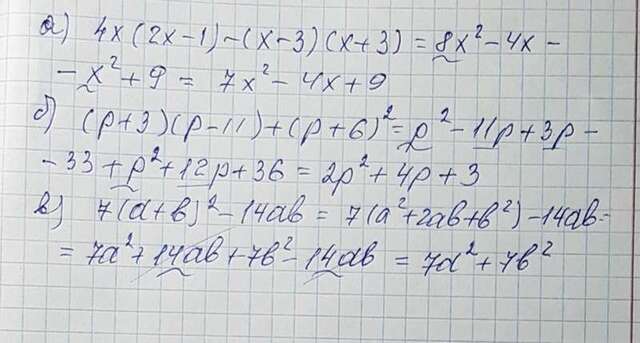 а) 4x(2x-1)-(x-3)(x+3) = 8x²-4x-
-x²+9 = 7x²-4x+9
б) (p+3)(p-11)+(p+6)² = p²-11p+3p-
-33+p²+12p+36 = 2p²+4p+3
в) 7(a+b)²-14ab = 7(a²+2ab+b²)-14ab=
= 7a²+14ab+7b²-14ab = 7a²+7b²